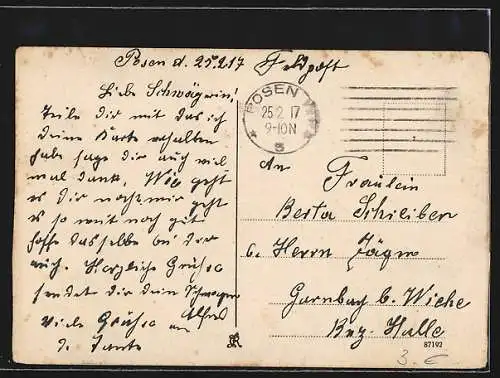 Posen d. 25.2.17
Feldpost
Liebe Schwägerin!
Teile dir mit das ich
deine Karte erhalten
habe sage dir auch viel
mal dank, Wie geht
es dir noch mir geht
es so weit noch gut
hoffe dasselbe bei dir
auch. Herzliche Grüße
sendet dir dein Schwager
Alfred
viele Grüße an
d. Tante
POSEN
25.2.17
9-10N
5
An
Fräulein
Berta Schreiber
b. Herrn Jäger
b. Wiehe
Bez. Halle
87192
3.-€